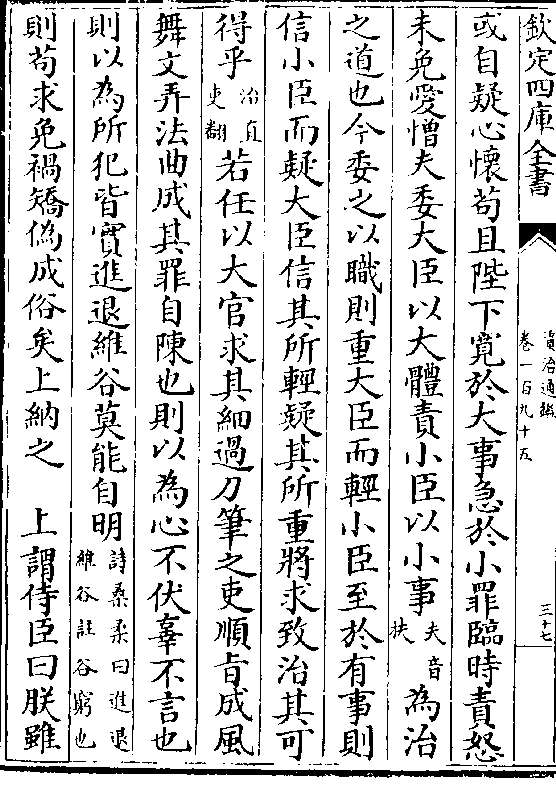 欽定四庫全書
資治通鑑
卷一百九十五
三十七
或自疑心懷苟且陛下寛於大事急於小罪臨時責怒
未免愛憎夫委大臣以大體責小臣以小事夫音扶為治
之道也今委之以職則重大臣而輕小臣至於有事則
信小臣而疑大臣信其所輕疑其所重將求致治其可
得乎治直吏翻若任以大官求其細過刀筆之吏順旨成風
舞文弄法曲成其罪自陳也則以為心不伏辜不言也
則以為所犯皆實進退維谷莫能自明詩桑柔曰進退維谷註谷窮也
則苟求免禍矯偽成俗矣上納之　上謂侍臣曰朕雖